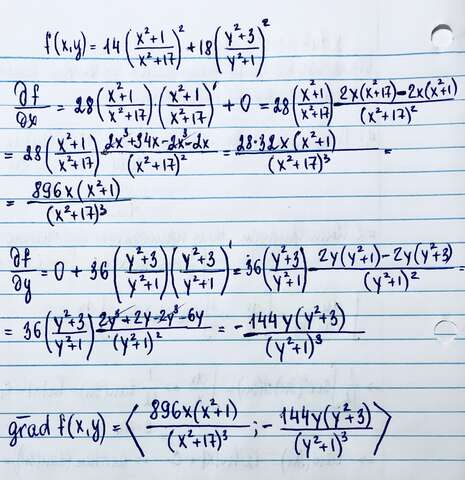 f(x,y) = 14((x²+1)/(x²+17))² + 18((y²+3)/(y²+1))²
∂f/∂x = 28((x²+1)/(x²+17))·((x²+1)/(x²+17))' + 0 = 28((x²+1)/(x²+17)) (2x(x²+17)-2x(x²+1))/(x²+17)²
= 28((x²+1)/(x²+17)) (2x³+34x-2x³-2x)/(x²+17)² = (28·32x(x²+1))/(x²+17)³ =
= (896x(x²+1))/(x²+17)³
∂f/∂y = 0 + 36((y²+3)/(y²+1))((y²+3)/(y²+1))' = 36((y²+3)/(y²+1)) (2y(y²+1)-2y(y²+3))/(y²+1)² =
= 36((y²+3)/(y²+1)) (2y³+2y-2y³-6y)/(y²+1)² = -(144y(y²+3))/(y²+1)³
grad f(x,y) = ⟨(896x(x²+1))/(x²+17)³ ; -(144y(y²+3))/(y²+1)³⟩